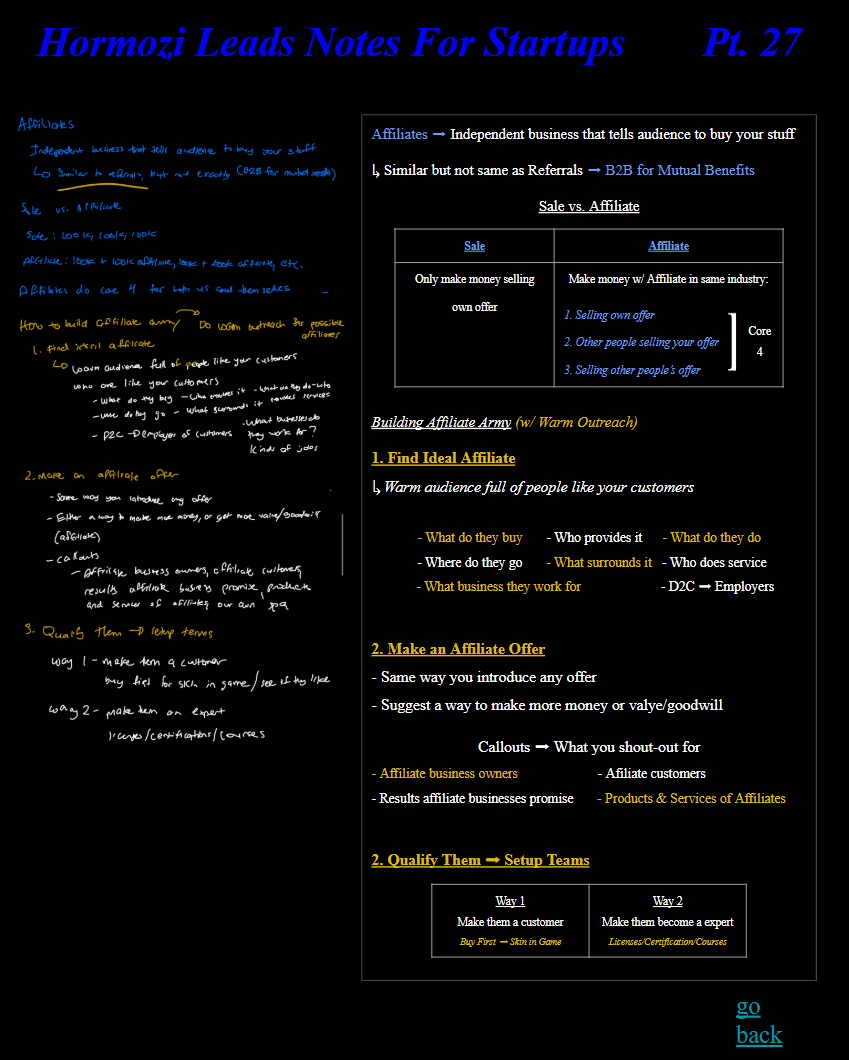 Hormozi Leads Notes For Startups Pt. 27
Affiliates
Independent business that tells audience to buy your stuff
↳ Similar to referrals, but not exactly (B2B for mutual needs)
Sale vs. Affiliate
Sale: 100k, 100k, 100k
Affiliate: 100k + 100k affiliate, 100k + 200k affiliate, etc.
Affiliates do core 4 for both us and themselves
How to build affiliate army → Do warm outreach for possible
affiliates
1. Find ideal affiliate
↳ Warm audience full of people like your customers
who are like your customers
- What do they buy - Who provides it - What do they do
- Where do they go - What surrounds it provides services
- D2C → Employers of customers . What businesses do
they work for?
Kinds of jobs
2. Make an affiliate offer
- Same way you introduce any offer
- Either a way to make more money, or get more value/goodwill
(affiliate)
- Callouts
- Affiliate business owners, affiliate customers,
results affiliate business promise, products
and services of affiliates, our own
3. Qualify Them → setup terms
Way 1 - make them a customer
buy first for skin in game/see if they like
Way 2 - make them an expert
licenses/certifications/courses
Affiliates → Independent business that tells audience to buy your stuff
↳ Similar but not same as Referrals → B2B for Mutual Benefits
Sale vs. Affiliate
Sale Affiliate
Only make money selling
own offer
Make money w/ Affiliate in same industry:
1. Selling own offer
2. Other people selling your offer
3. Selling other people's offer
Core
4
Building Affiliate Army (w/ Warm Outreach)
1. Find Ideal Affiliate
↳ Warm audience full of people like your customers
- What do they buy - Who provides it - What do they do
- Where do they go - What surrounds it - Who does service
- What business they work for - D2C → Employers
2. Make an Affiliate Offer
- Same way you introduce any offer
- Suggest a way to make more money or valye/goodwill
Callouts → What you shout-out for
- Affiliate business owners - Afiliate customers
- Results affiliate businesses promise - Products & Services of Affiliates
2. Qualify Them → Setup Teams
Way 1 Way 2
Make them a customer Make them become a expert
Buy First → Skin in Game Licenses/Certification/Courses
go
back